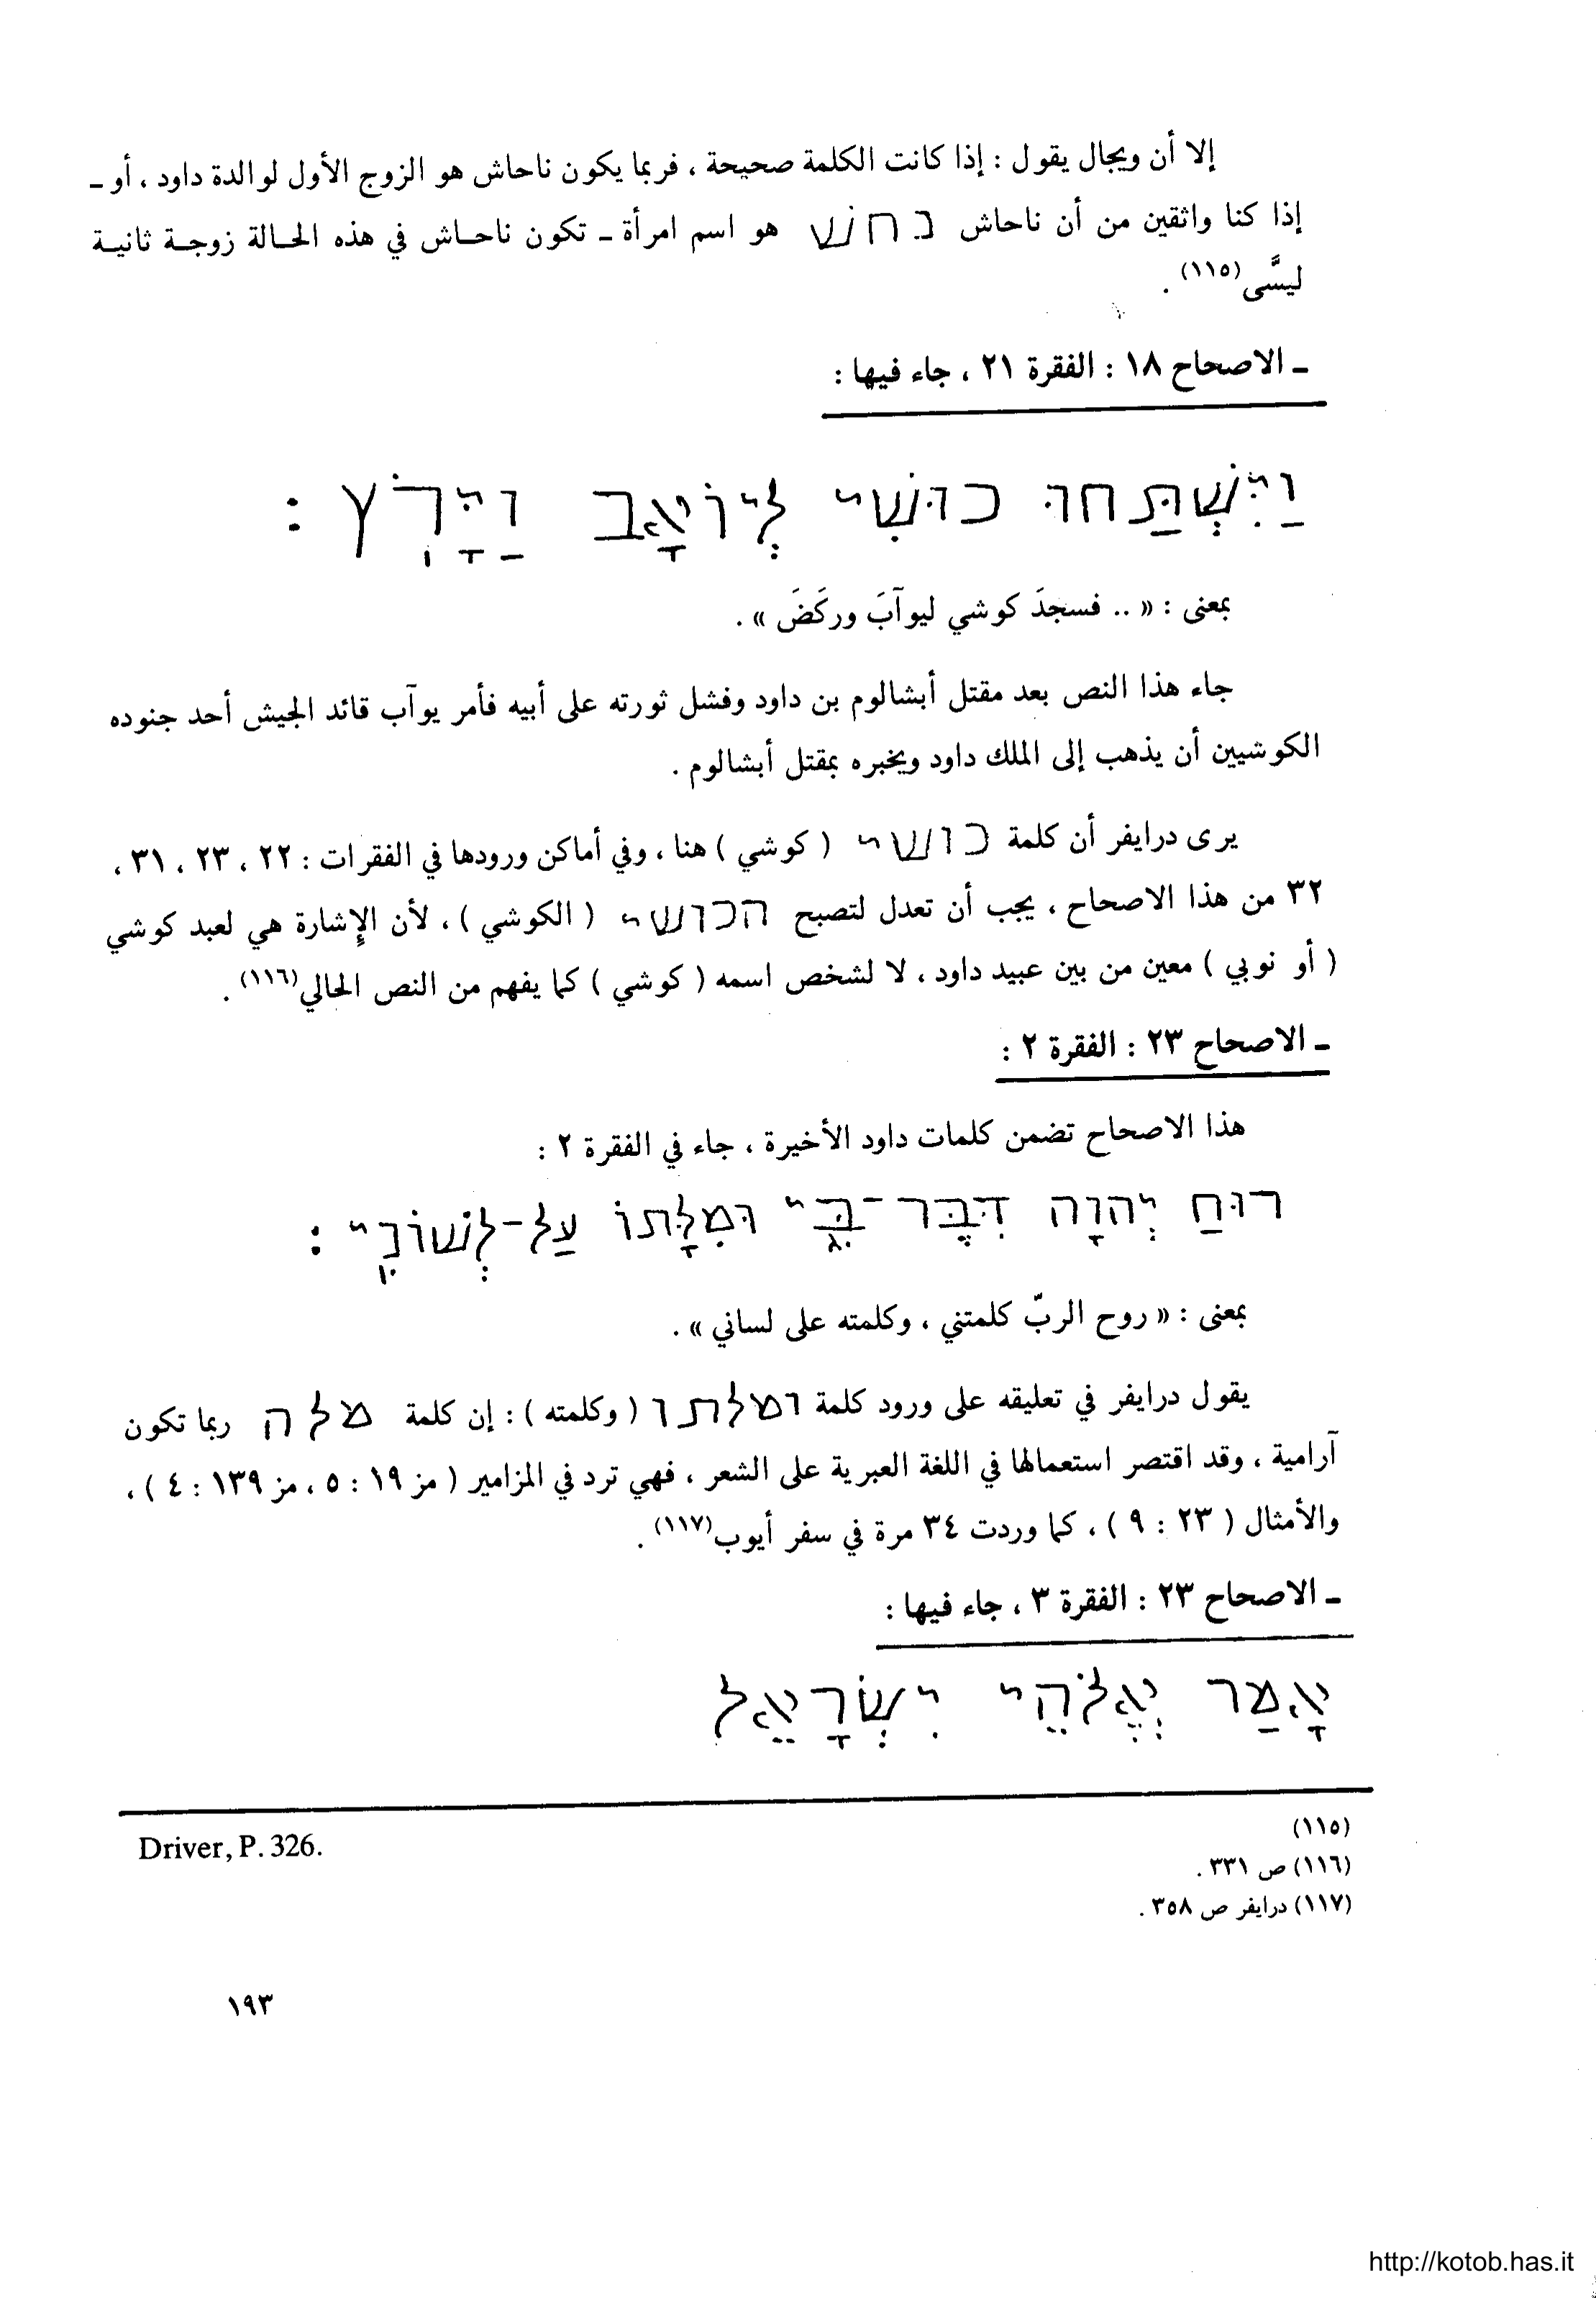 إلا أن ويجال يقول : إذا كانت الكلمة صحيحة ، فربما يكون ناحاش هو الزوج الأول لوالدة داود ، أو ـ
إذا كنا واثقين من أن ناحاش נחש هو اسم امرأة ـ تكون ناحاش في هذه الحالة زوجة ثانية
ليسَّى (١١٥) .
ـ الاصحاح ١٨ : الفقرة ٢١ ، جاء فيها :
וַיִּשְׁתַּחוּ כוּשִׁי לְיוֹאָב וַיָּרֹץ :
بمعنى : « .. فسجدَ كوشي ليوآبَ وركَضَ » .
جاء هذا النص بعد مقتل أبشالوم بن داود وفشل ثورته على أبيه فأمر يوآب قائد الجيش أحد جنوده
الكوشيين أن يذهب إلى الملك داود ويخبره بمقتل أبشالوم .
يرى درايفر أن كلمة כושי ( كوشي ) هنا ، وفي أماكن ورودها في الفقرات : ٢٢ ، ٢٣ ، ٣١ ،
٣٢ من هذا الاصحاح ، يجب أن تعدل لتصبح הכושי ( الكوشي ) ، لأن الإشارة هي لعبد كوشي
( أو نوبي ) معين من بين عبيد داود ، لا لشخص اسمه ( كوشي ) كما يفهم من النص الحالي (١١٦) .
ـ الاصحاح ٢٣ : الفقرة ٢ :
هذا الاصحاح تضمن كلمات داود الأخيرة ، جاء في الفقرة ٢ :
רוּחַ יְהוָה דִּבֶּר־בִּי וּמִלָּתוֹ עַל־לְשׁוֹנִי :
بمعنى : « روح الربّ كلمتني ، وكلمته على لساني » .
يقول درايفر في تعليقه على ورود كلمة ומלתו ( وكلمته ) : إن كلمة מלה ربما تكون
آرامية ، وقد اقتصر استعمالها في اللغة العبرية على الشعر ، فهي ترد في المزامير ( مز ١٩ : ٥ ، مز ١٣٩ : ٤ ) ،
والأمثال ( ٢٣ : ٩ ) ، كما وردت ٣٤ مرة في سفر أيوب (١١٧) .
ـ الاصحاح ٢٣ : الفقرة ٣ ، جاء فيها :
אָמַר אֱלֹהֵי יִשְׂרָאֵל
(١١٥) Driver, P. 326.
(١١٦) ص ٣٣١ .
(١١٧) درايفر ص ٣٥٨ .
١٩٣
http://kotob.has.it